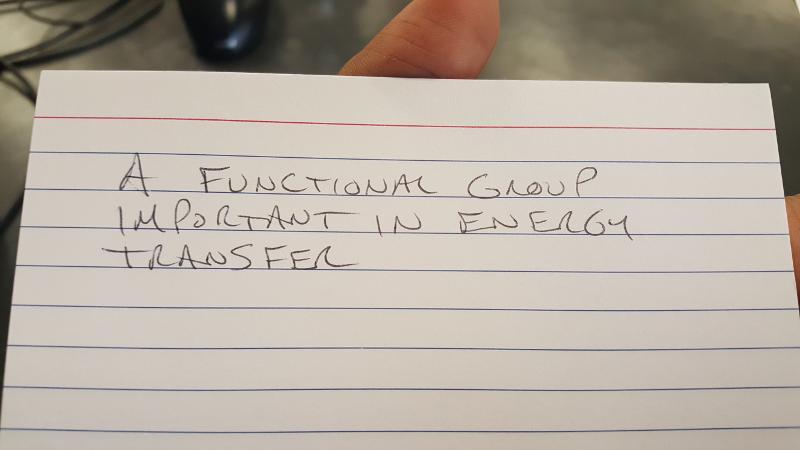 A FUNCTIONAL GROUP
IMPORTANT IN ENERGY
TRANSFER